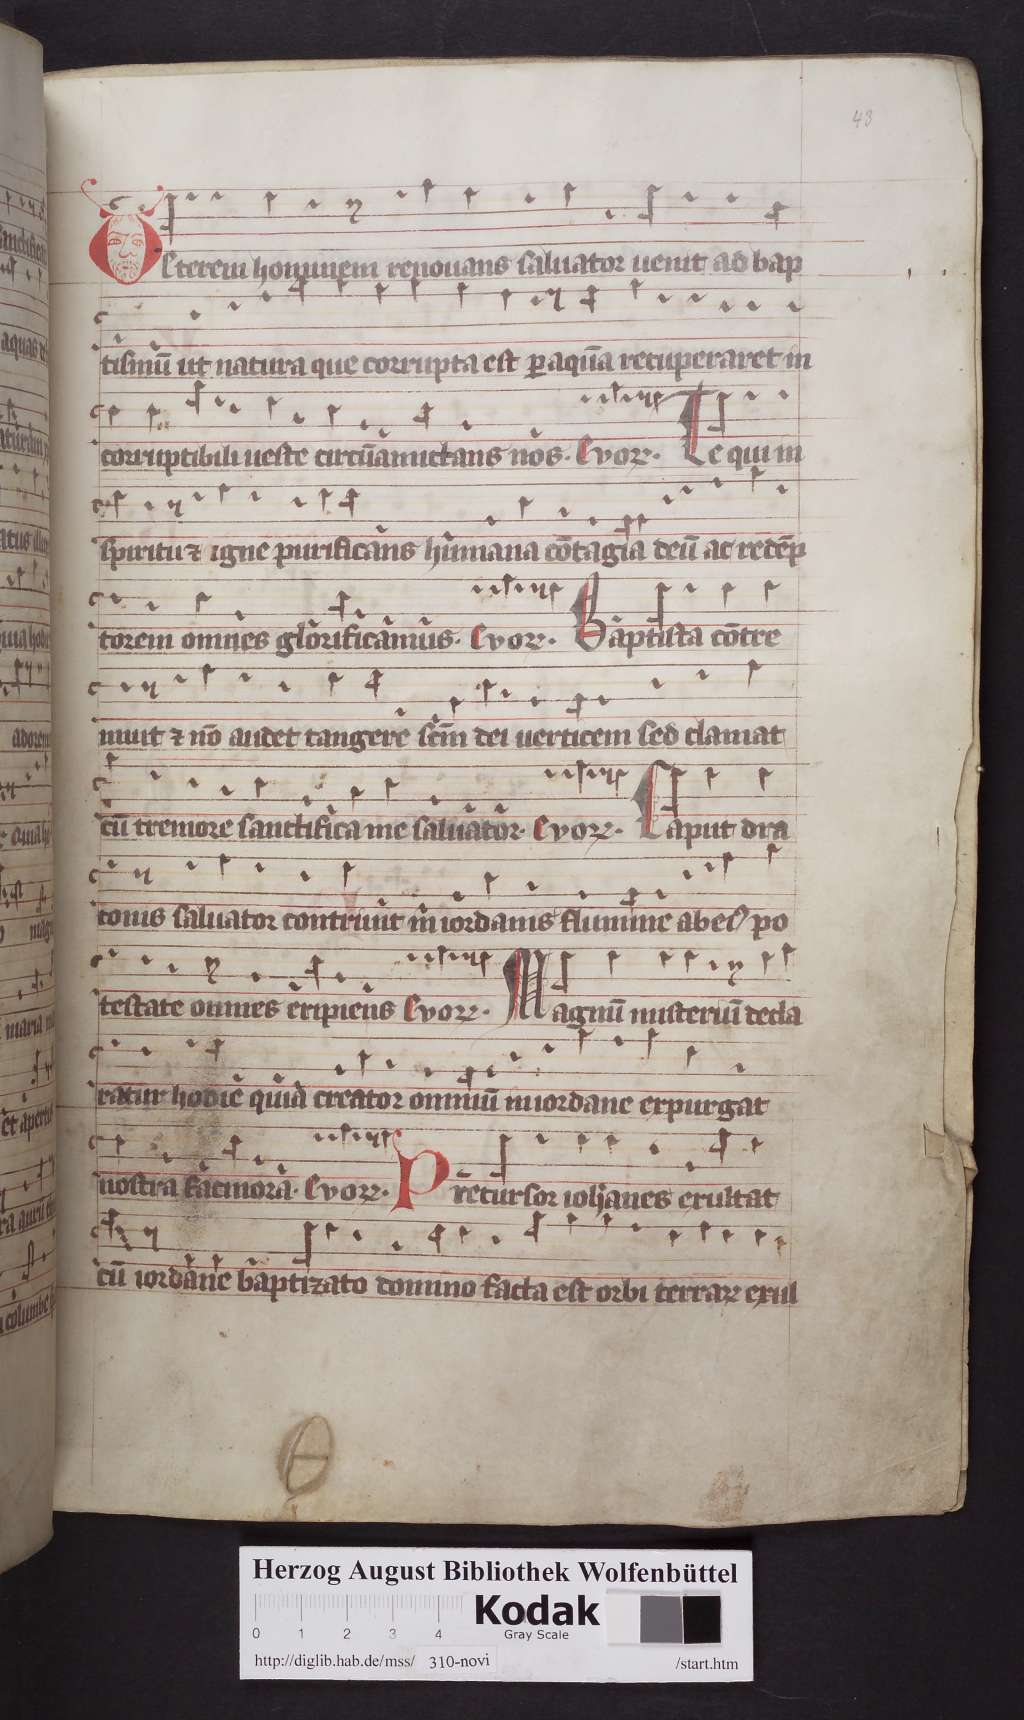 43
Veterem hominem renouans saluator uenit ad bap
tismū ut natura que corrupta est ꝑ aquā recuperaret in
corruptibili ueste circūamictans nos. Evoꝝ. Te qui in
spiritu ⁊ igne purificans humana cōtagia deū ac redēp
torem omnes glorificamus. Evoꝝ. Baptista cōtre
muit ⁊ nō audet tangere scm̄ dei uerticem sed clamat
cū tremore sanctifica me saluator. Evoꝝ. Caput dra
conis saluator contriuit in iordanis flumine ab eiꝰ po
testate omnes eripiens Evoꝝ. Magnū misteriū decla
ratur hodie quia creator omniū in iordane expurgat
nostra facinora. Evoꝝ. Precursor iohanes exultat
cū iordane baptizato domino facta est orbi terraꝝ exul
Herzog August Bibliothek Wolfenbüttel
Kodak
Gray Scale
0 1 2 3 4
http://diglib.hab.de/mss/ 310-novi /start.htm